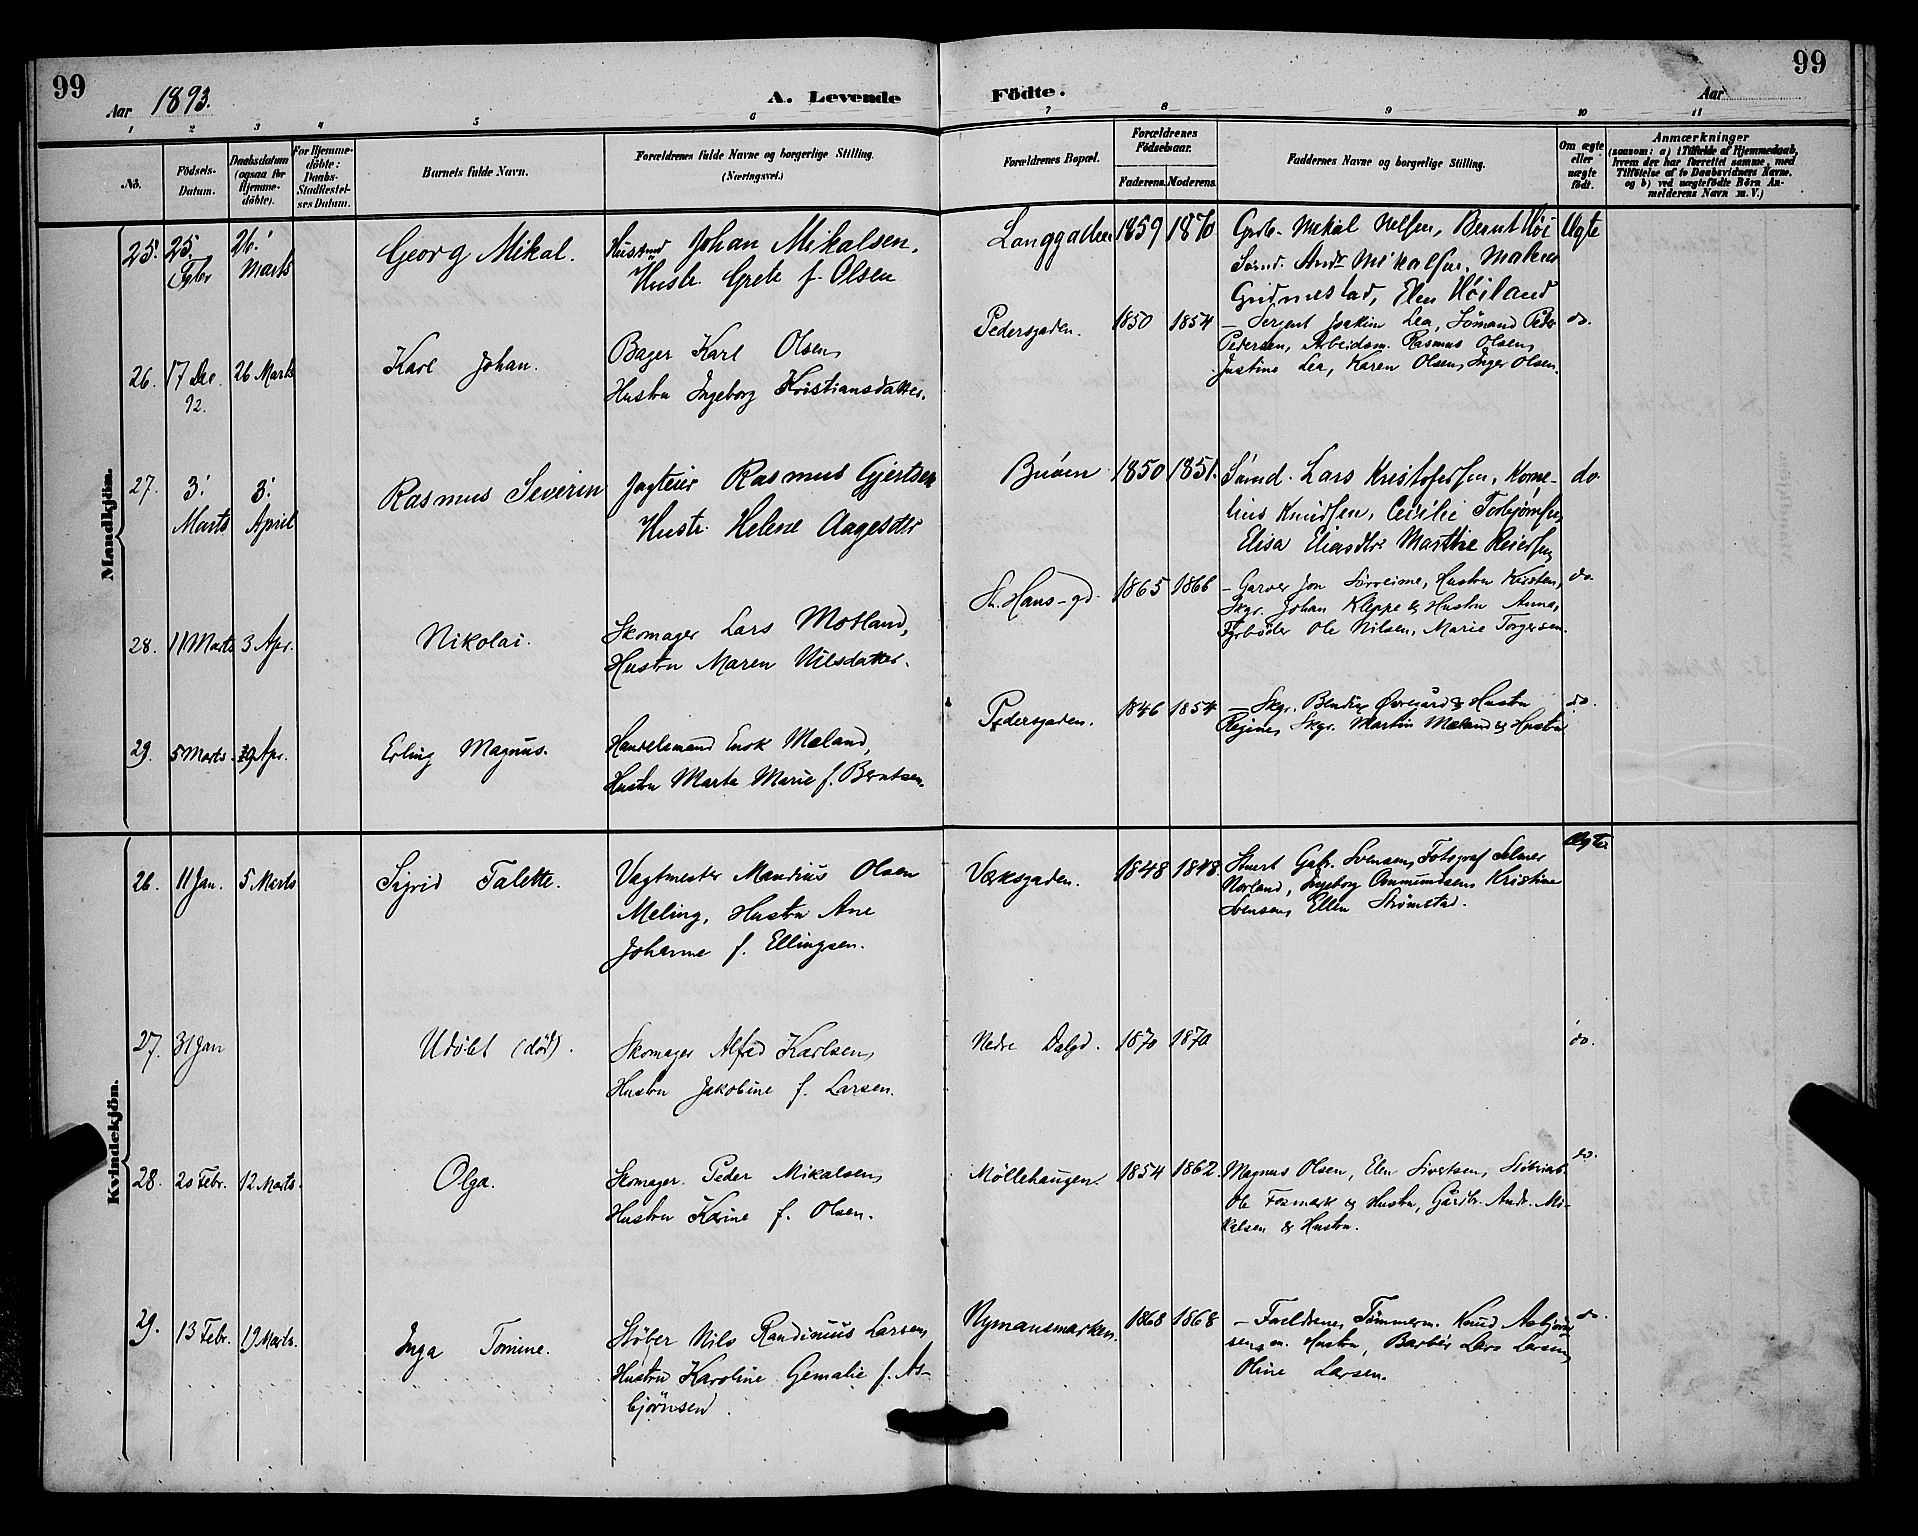 99
99
Aar 1893.
A. Levende Födte.
Aar
1 2 3 4 5 6 7 8 9 10 11
No.
Födsels-Datum.
Daabsdatum (ogsaa for Hjemme-döbte).
For Hjemme-döbte: Daabs-Stadfæstel-ses Datum.
Barnets fulde Navn.
Forældrenes fulde Navne og borgerlige Stilling. (Næringsvei.)
Forældrenes Bopæl.
Forældrenes Födselsaar.
Faderens. Moderens.
Faddernes Navne og borgerlige Stilling.
Om ægte eller uægte födt.
Anmærkninger
(saasom: a) i Tilfælde af Hjemmedaab, hvem der har forrettet samme, med Tilföielse af to Daabsvidners Navne, og b) ved uægtefödte Börn An-melderens Navn m. V.)
Mandkjön.
25. 25. Febr 26. Marts Georg Mikal.
Johan Mikalsen,
Hustr. Grete f. Olsen
Langgaden 1859 1870
Mikal Nelsen, Bernt Höi
Sömd. Andr Mikalsen,
Elen Höiland
Ægte
26. 17 Dec. 92. 26 Marts Karl Johan.
Bager Karl Olsen,
Hustru Ingeborg Kristiansdatter.
Pedersgaden. 1850 1854
– Sergent Joakim Lea, Sömand Peder
Pedersen, Arbeidsm. Rasmus Olsen,
Justine Lea, Karen Olsen, Inger Olsen.
do.
27. 3. Marts 3. April Rasmus Severin
Rasmus Gjertsen
Hustr. Helene Aagesdtr
Buöen 1850 1851.
Sömd. Lars Kristofersen, Korne-
lius Knudsen, Cecilie Torbjörnsen,
Elisa Eliasdtr. Marthe Reiersen
do.
28. 11 Marts 3 Apr. Nikolai.
Skomager Lars Motland,
Hustru Maren Nilsdatter.
St. Hans-gd. 1865 1866
– Garver Jon Sörreime, Hustru Kirsten,
Skgr. Johan Kleppe & Hustru Anna,
Fyrböder Ole Nilsen, Marie Torgersen.
do.
29. 5 Marts Apr. Erling Magnus.
Handelsmand Enok Mæland,
Hustru Marta Marie f. Berntsen.
Pedersgaden. 1846 1854
– Skgr. Bendix Övregård & Hustru
Regine, Skgr. Martin Mæland & Hustru
do.
Kvindekjön.
26. 11 Jan. 5 Marts Sigrid Talette.
Vagtmester Mandius Olsen
Meling, Hustru Ane
Johanne f. Ellingsen.
Værksgaden. 1848 1848
Gabr. Svensen, Fotograf Selmer
Norland, Ingeborg Ommundsen, Kristine
Svensen, Ellen Strömstad.
Ægte
27. 31 Jan Udöbt (död).
Skomager Alfred Karlsen,
Hustru Jakobine f. Larsen.
Nedre Dalgd. 1870 1870
do.
28. 20 Febr. 12 Marts. Olga.
Skomager. Peder Mikalsen,
Hustru Karine f. Olsen.
Möllehaugen. 1854 1862.
Magnus Olsen, Elen Sivertsen,
Ole Fosmark & Hustru, Gårdbr. Andr. Mi-
kalsen & Hustru.
do.
29. 13 Febr. 19 Marts. Inga Tomine.
Stöber Nils Randinius Larsen,
Hustru Karoline Gemalie f. As-
björnsen.
Nymansmarken. 1868 1868
– Forældrene, Tömmerm. Knud Asbjörn-
sen m. Hustru, Barbér Lars Larsen,
Oline Larsen.
do.